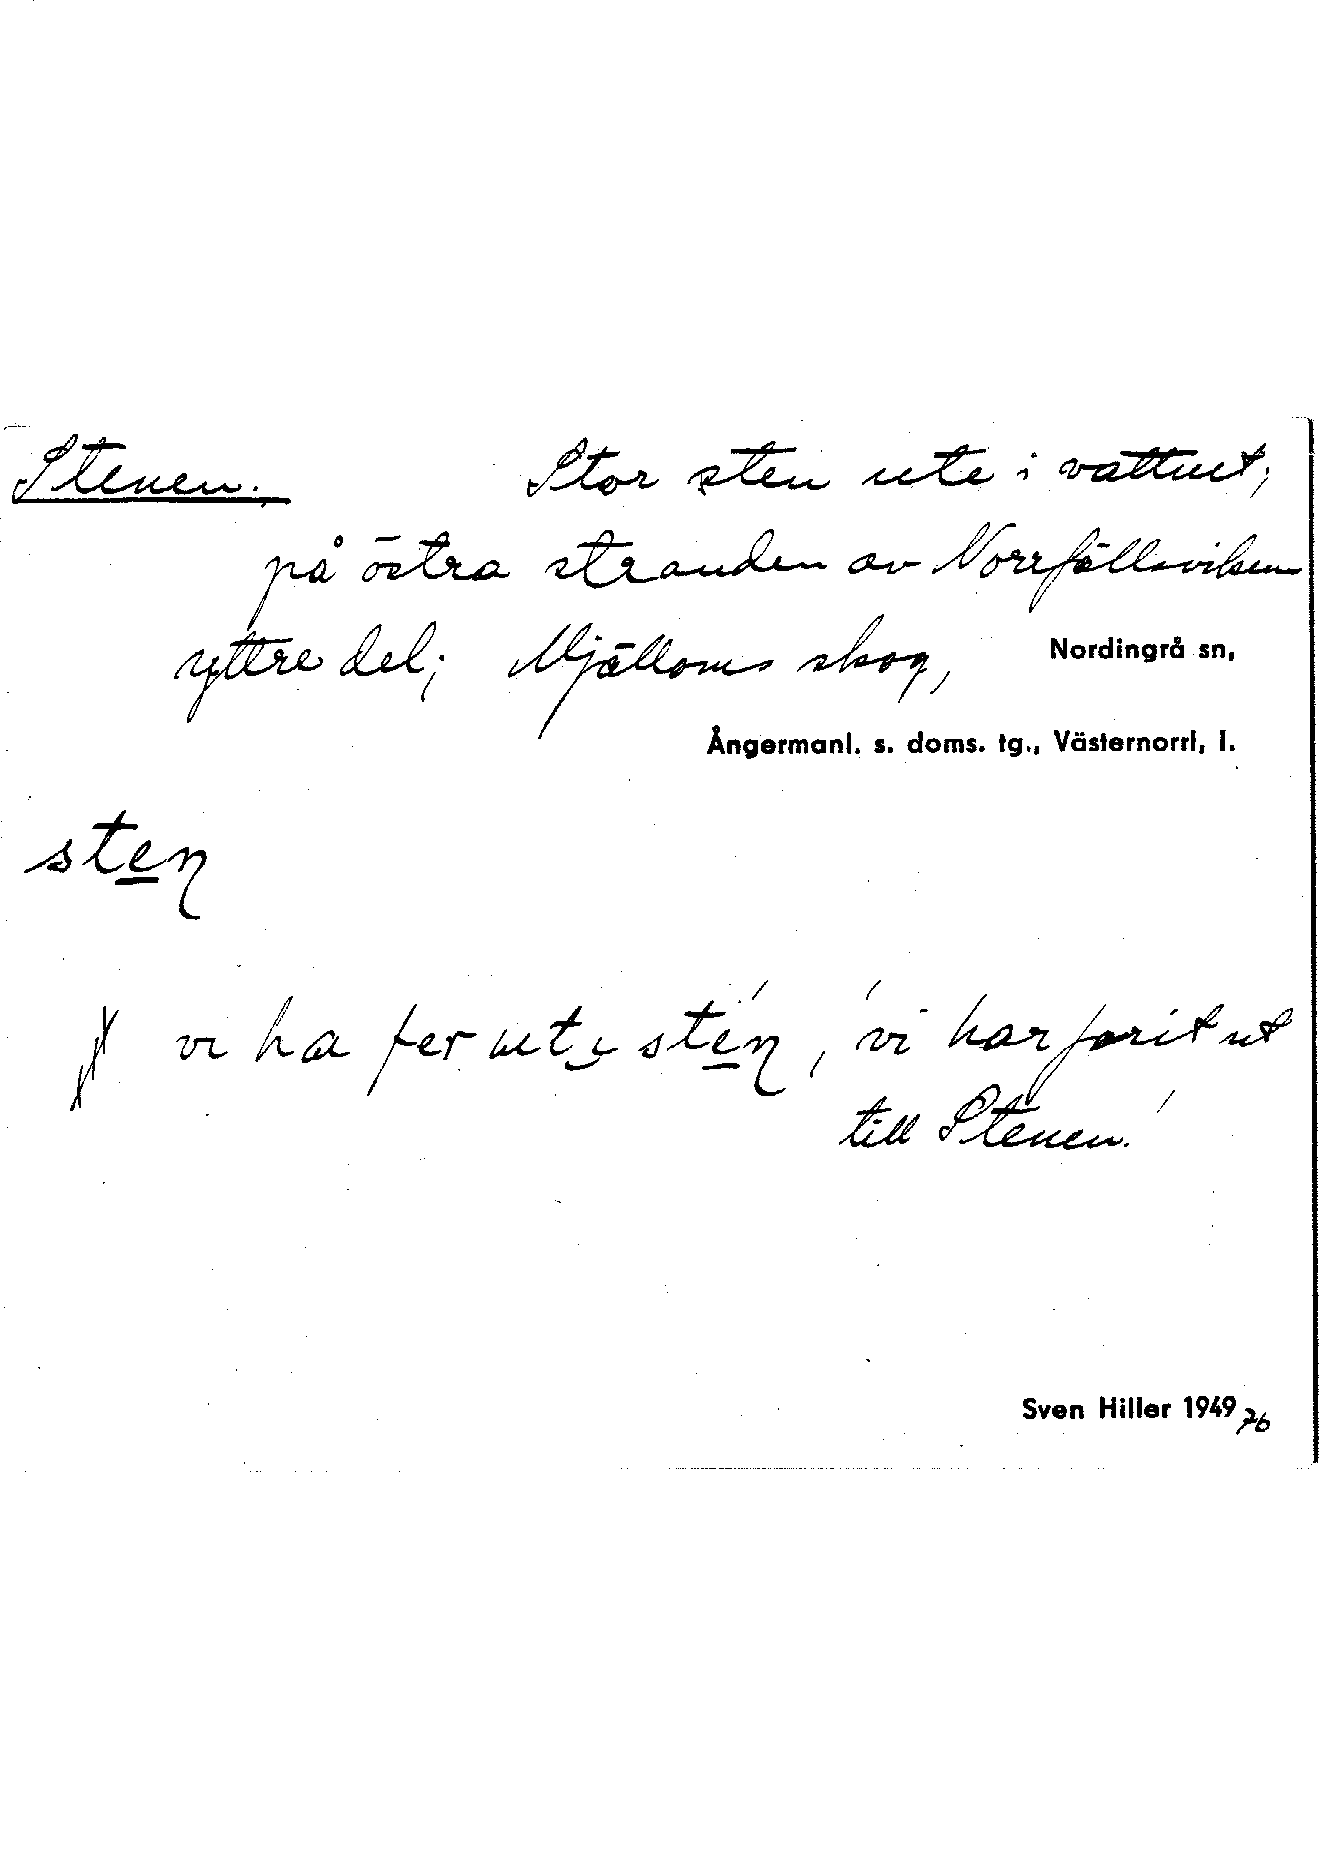 Stenen. Stor sten ute i vattnet;
på östra stranden av Norrfällsviken
yttre del; Mjälloms skog, Nordingrå sn,
Ångermanl. s. doms. tg., Västernorrl. l.
sten
vi ha fer ut sten, 'vi har farit ut
till Stenen.'
Sven Hiller 1949 76